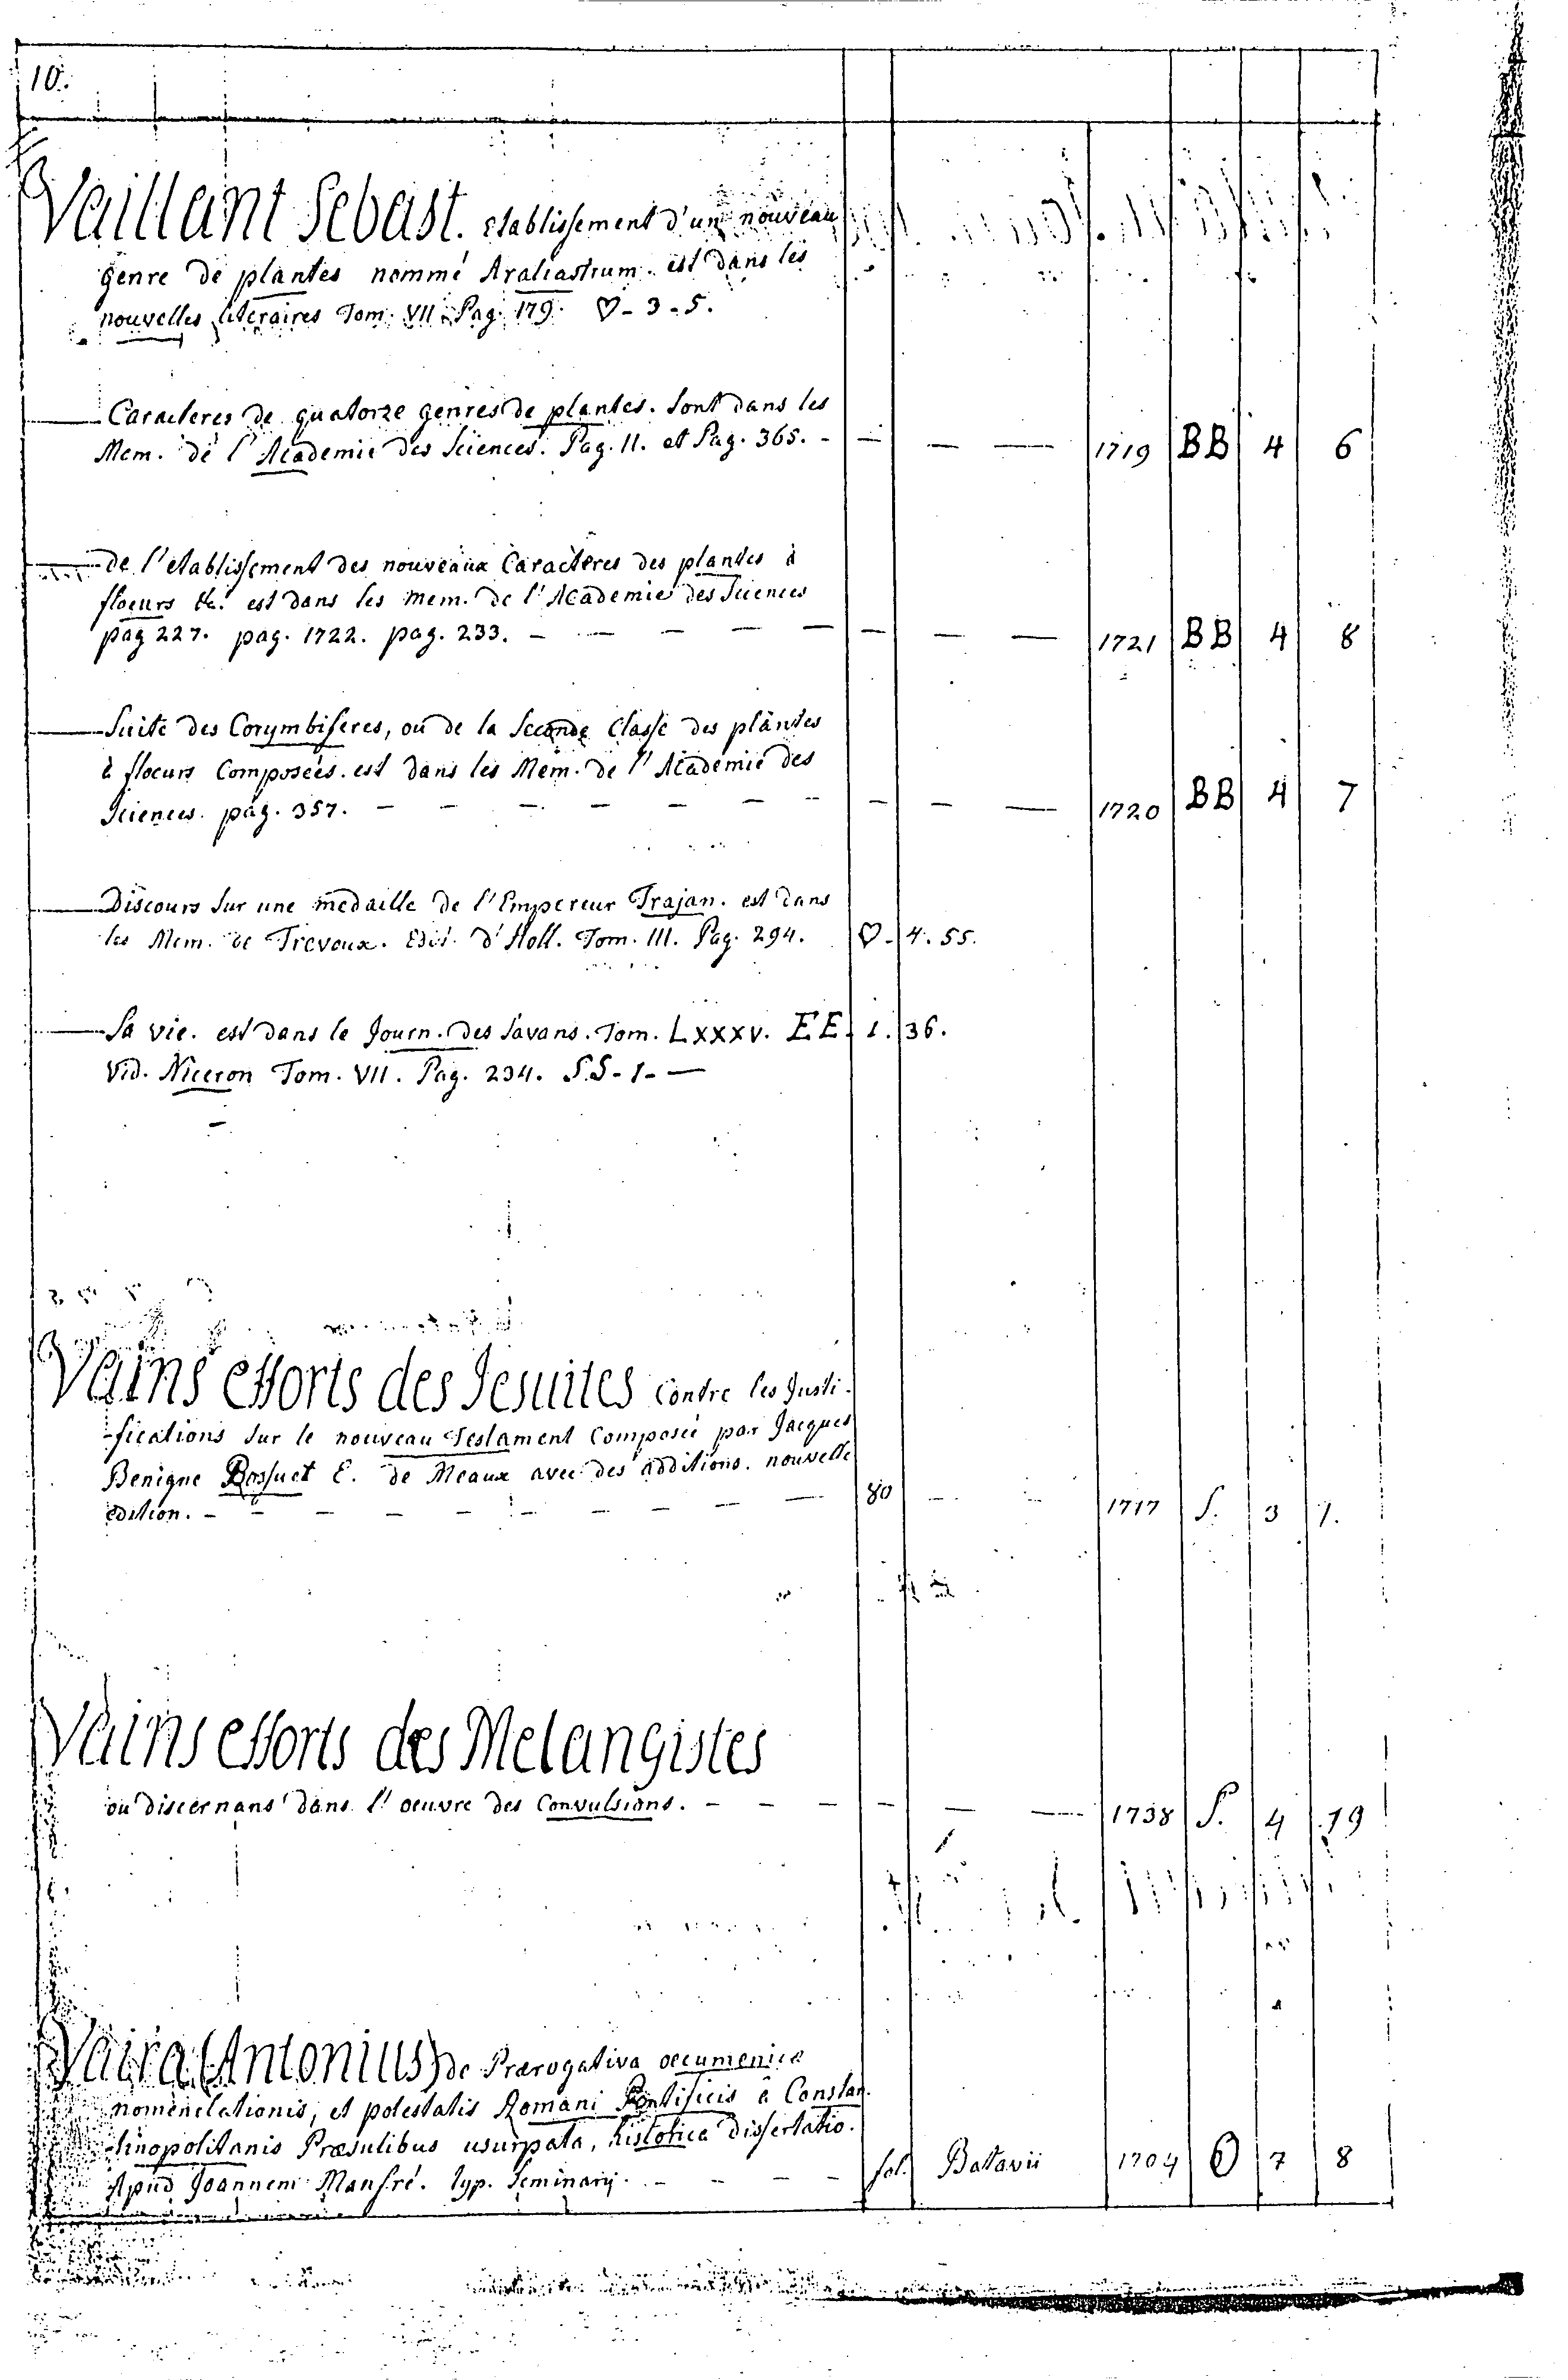 10.
Vaillant Sebast. etablissement d'un nouveau
genre de plantes nommé Araliastrum. est dans les
nouvelles literaires Tom. VII. Pag. 179. ♡ - 3 - 5.
Caracteres de quatorze genres de plantes. Sont dans les
Mem. de l'Academie des Sciences. Pag. 11. et Pag. 365. - — — — 1719 BB 4 6
de l'etablissement des nouveaux Caracteres des plantes à
floeurs &c. est dans les Mem. de l'Academie des Sciences
pag 227. pag. 1722. pag. 233. - — — — — — — — 1721 BB 4 8
Suite des Corymbiferes, ou de la Seconde Classe des plantes
à floeurs Composées. est dans les Mem. de l'Academie des
Sciences. pag. 357. — — — — — — — — — — 1720 BB 4 7
Discours Sur une medaille de l'Empereur Trajan. est dans
les Mem. de Trevoux. Edit. d'Holl. Tom. III. Pag. 294. ♡ - 4. 55.
Sa vie. est dans le Journ. des Savans. Tom. LXXXV. EE. 1. 36.
Vid. Niceron Tom. VII. Pag. 234. S.S - 1 - —
Vains efforts des Jesuites contre les Justi-
-fications Sur le nouveau Testament Composée par Jacques
Benigne Bossuet E. de Meaux avec des additions. nouvelle
edition. - - — — — — — — — 80 — — 1717 S. 3 7.
Vains efforts des Melangistes
ou discernans dans l'oeuvre des Convulsions. - — — — — — 1738 S. 4 19
Vaira (Antonius) de Prærogativa oecumenica
nomenclationis, et potestatis Romani Pontificis â Constan-
-tinopolitanis Præsulibus usurpata, historica dissertatio.
Apud Joannem Manfré. typ. Seminarij. - — — — fol. Batavii 1704 O 7 8